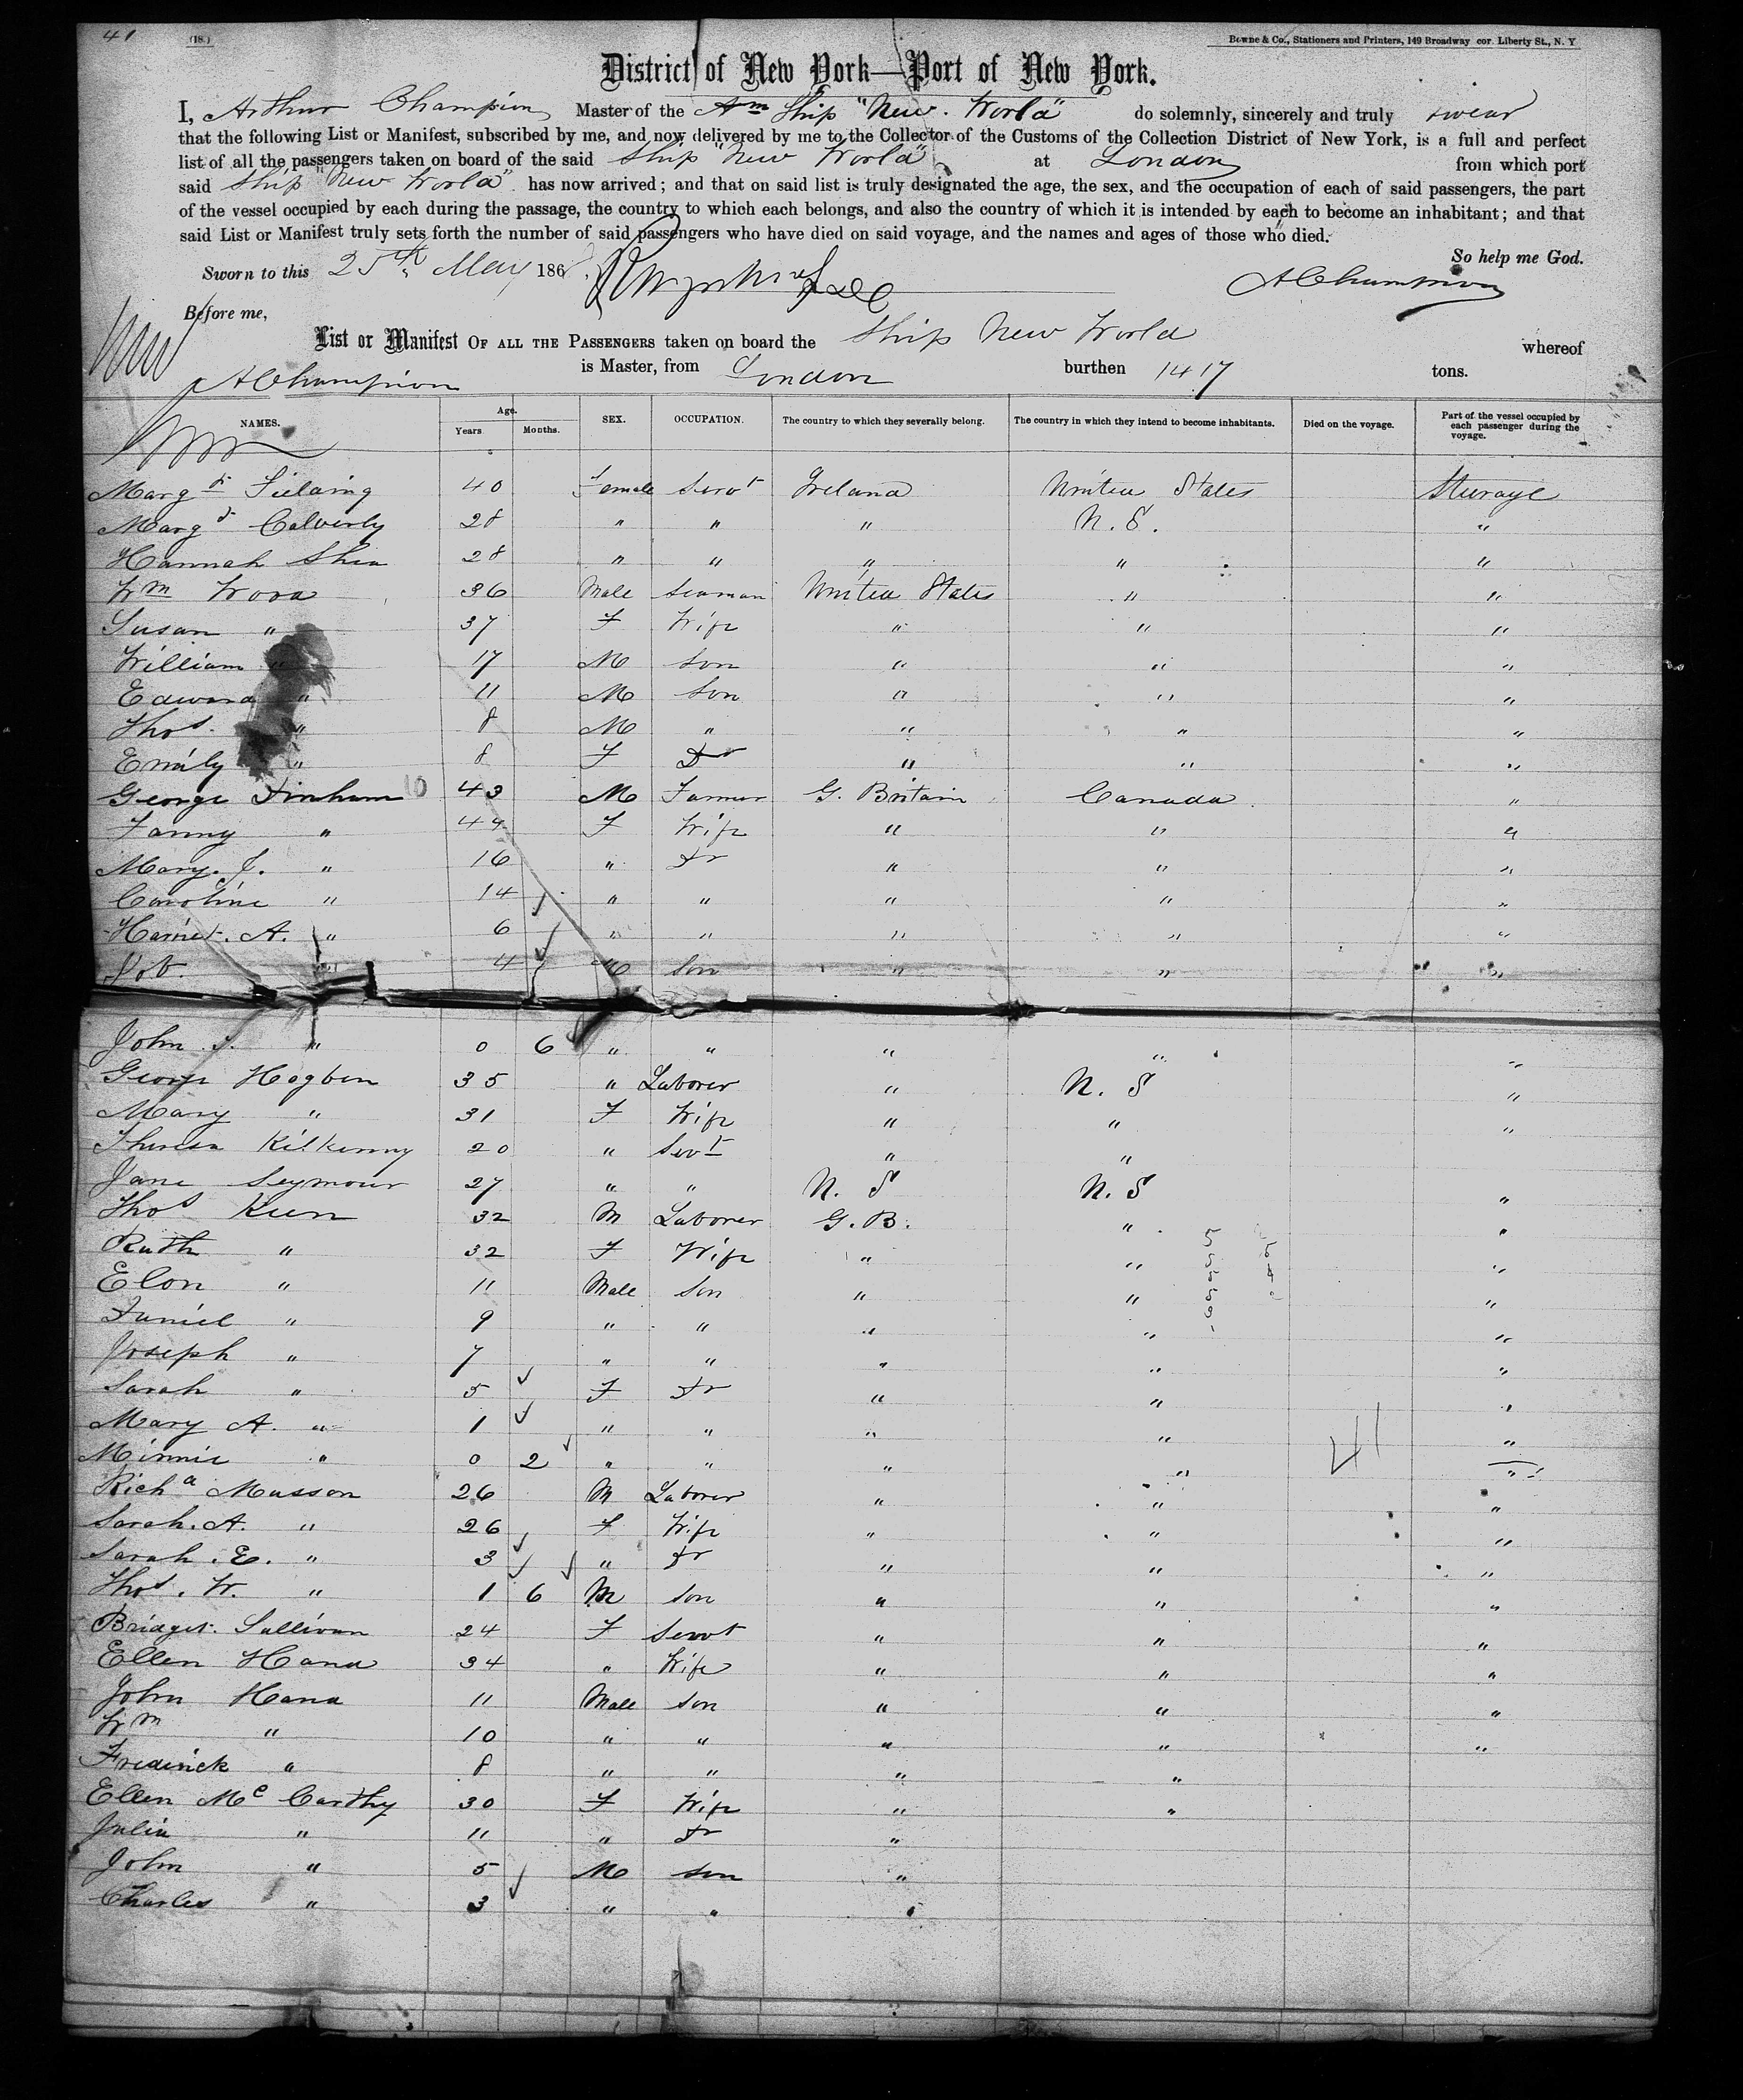 41
(18.)
Bowne & Co., Stationers and Printers, 149 Broadway cor. Liberty St., N. Y
District of New York—Port of New York.
I, Arthur Champion Master of the Am Ship "New World" do solemnly, sincerely and truly swear
that the following List or Manifest, subscribed by me, and now delivered by me to the Collector of the Customs of the Collection District of New York, is a full and perfect
list of all the passengers taken on board of the said Ship "New World" at London from which port
said Ship "New World" has now arrived; and that on said list is truly designated the age, the sex, and the occupation of each of said passengers, the part
of the vessel occupied by each during the passage, the country to which each belongs, and also the country of which it is intended by each to become an inhabitant; and that
said List or Manifest truly sets forth the number of said passengers who have died on said voyage, and the names and ages of those who died.
So help me God.
Sworn to this 25th May 186
A Champion
Before me,
List or Manifest OF ALL THE PASSENGERS taken on board the Ship New World whereof
A Champion is Master, from London burthen 1417 tons.
NAMES. Age. Years Months. SEX. OCCUPATION. The country to which they severally belong. The country in which they intend to become inhabitants. Died on the voyage. Part of the vessel occupied by each passenger during the voyage.
Margt Fielding 40 Female Servt Ireland United States Sterage
Margt Calverly 28 " " " U. S. "
Hannah Shea 28 " " " " "
Wm Wood 36 Male Seaman United States " "
Susan " 37 F Wife " " "
William " 17 M Son " " "
Edward " 11 M Son " " "
Thos. " 8 M " " " "
Emily " 8 F Dr " " "
George Dinham 10 43 M Farmer G. Britain Canada "
Fanny " 44 F Wife " " "
Mary. J. " 16 " Dr " " "
Caroline " 14 " " " " "
Harriet. A. " 6 " " " " "
Job 4 M Son " " "
John " 0 6 " " " " "
George Hogben 35 " Laborer " U. S "
Mary " 31 F Wife " " "
Theresa Kilkenny 20 " Servt " "
Jane Seymour 27 " " U. S U. S "
Thos Keen 32 M Laborer G. B. " "
Ruth " 32 F Wife " " "
Elon " 11 Male Son " " "
Daniel " 9 " " " " "
Joseph " 7 " " " " "
Sarah " 5 F Dr " " "
Mary A. " 1 " " " " "
Minnie " 0 2 " " " " 41 "
Richd Musson 26 M Laborer " " "
Sarah. A. " 26 F Wife " " "
Sarah. E. " 3 " Dr " " "
Thos. W. " 1 6 M Son " " "
Bridget. Sullivan 24 F Servt " " "
Ellen Hand 34 " Wife " " "
John Hand 11 Male Son " " "
Wm " 10 " " " " "
Frederick " 8 " " " "
Ellen Mc Carthy 30 F Wife " "
Julia " 11 " Dr "
John " 5 M Son "
Charles " 3 " " "